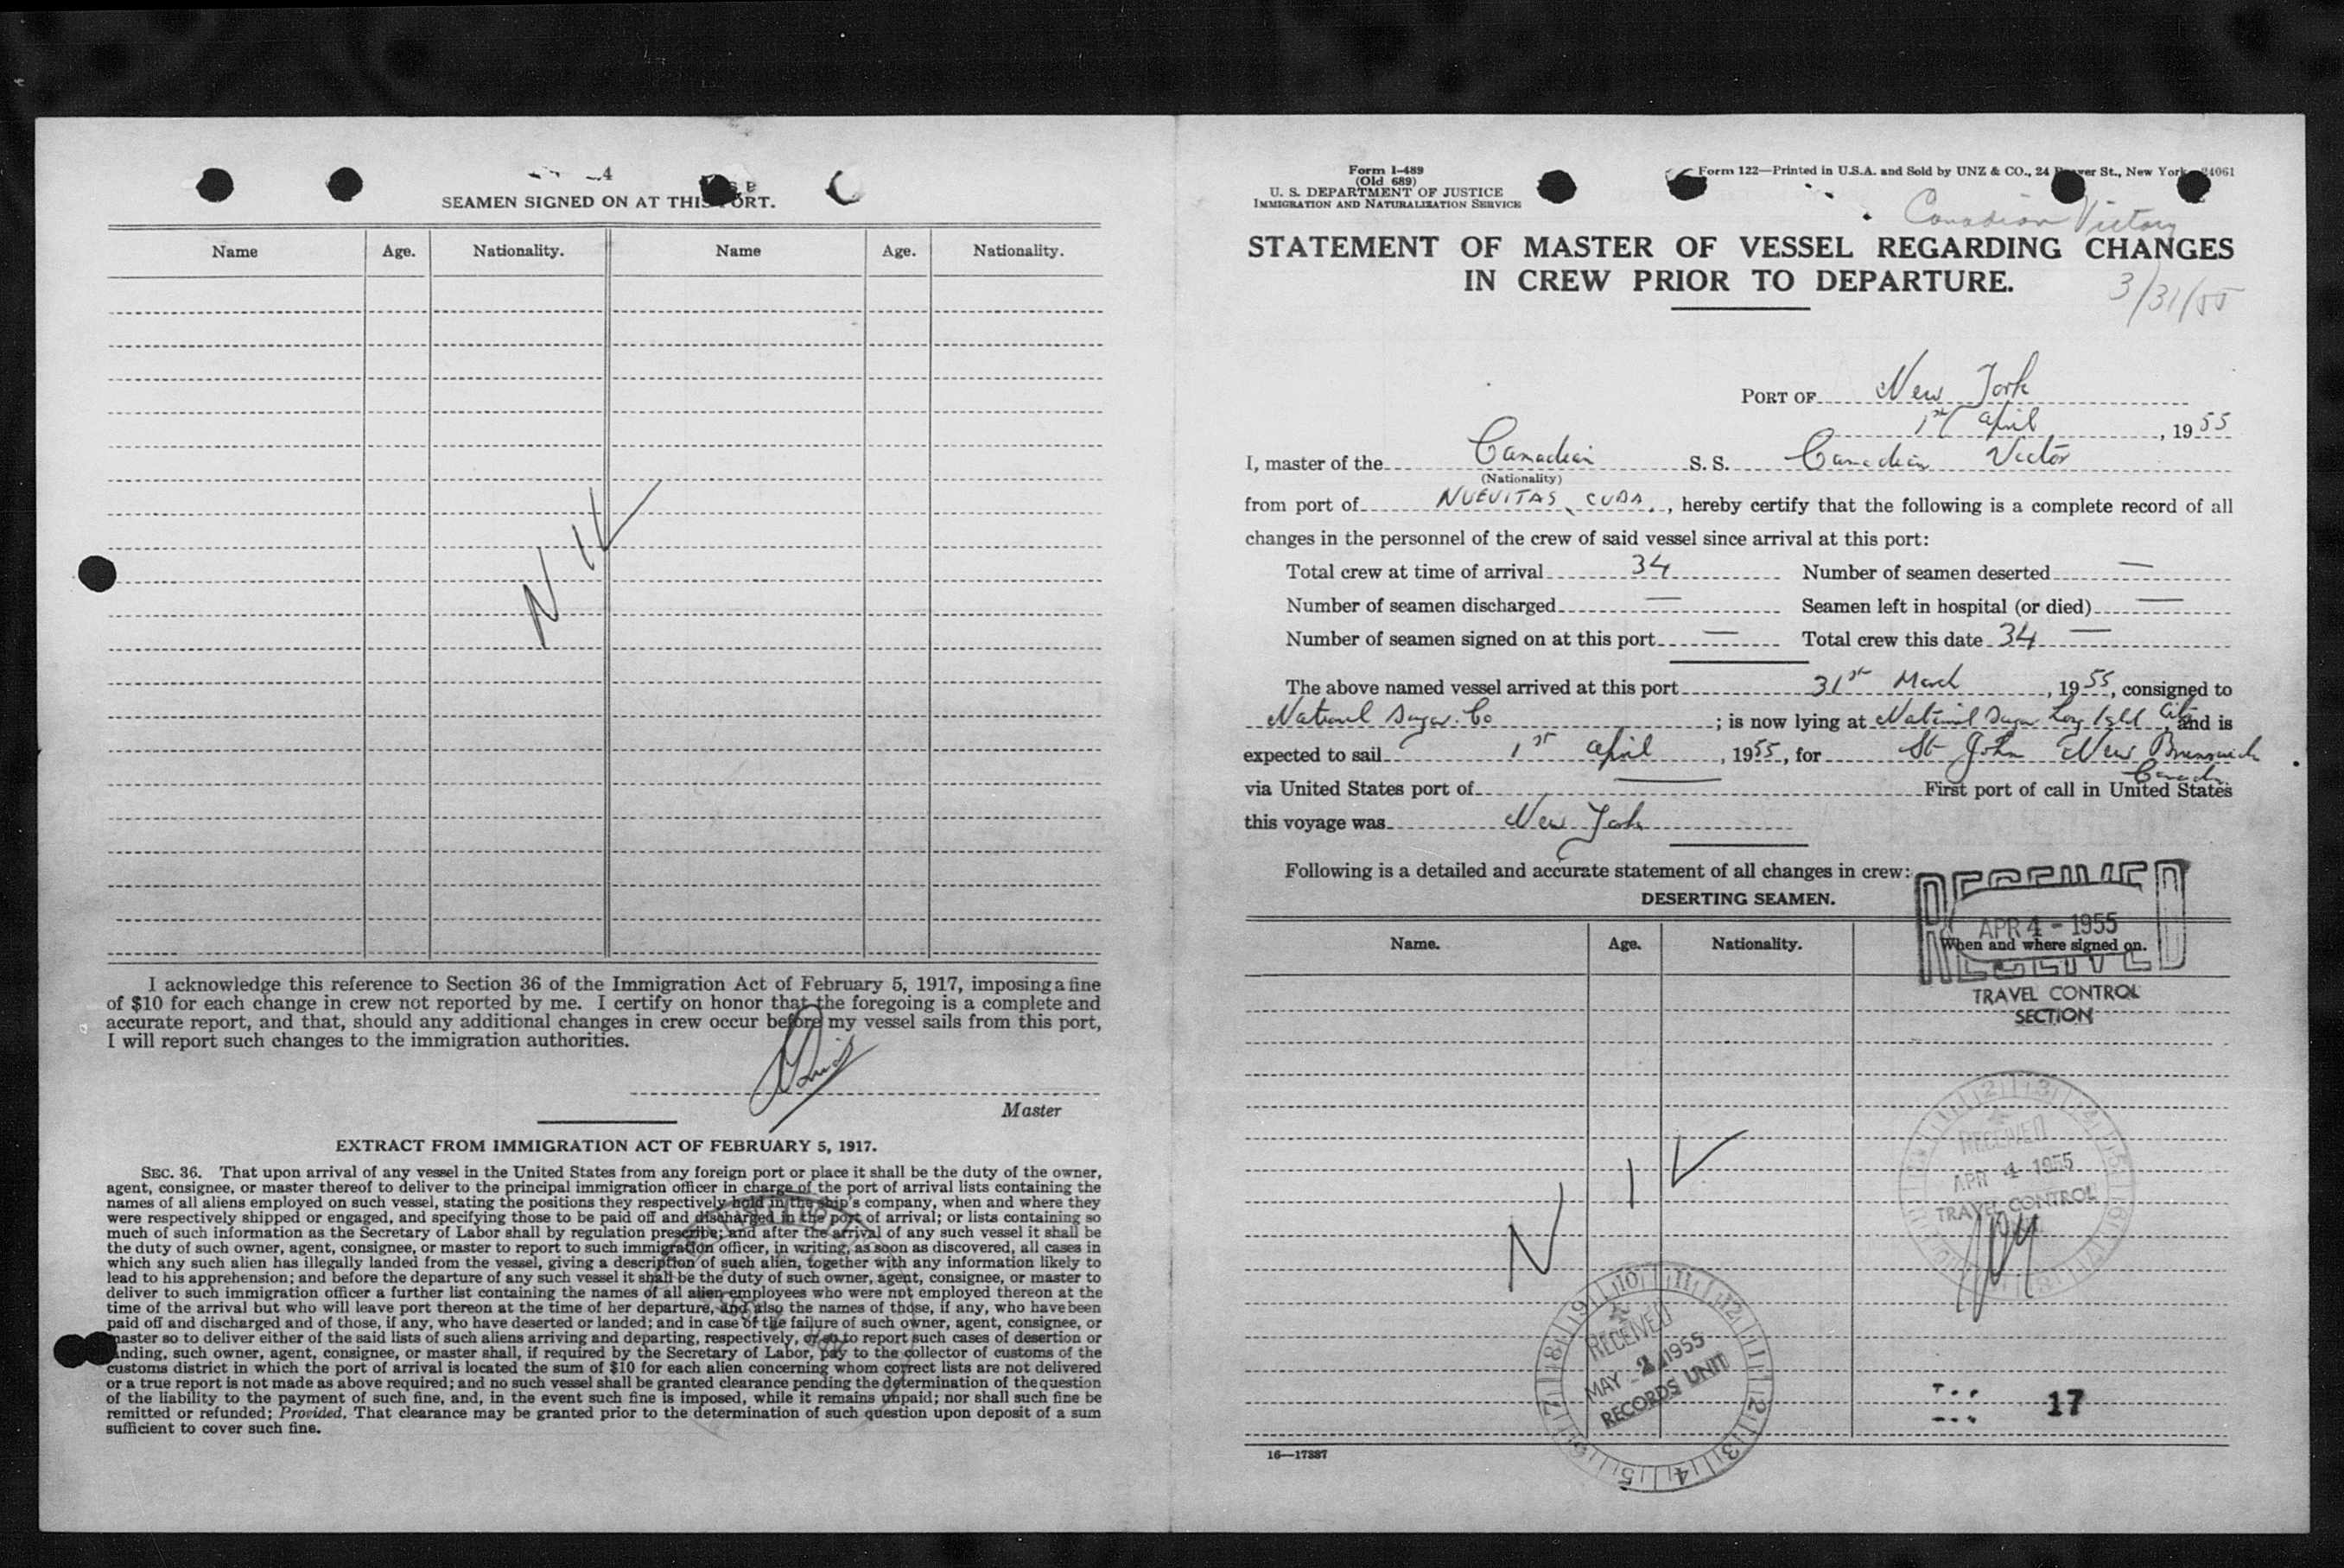 4
SEAMEN SIGNED ON AT THIS PORT.
Name Age. Nationality. Name Age. Nationality.
NIL
I acknowledge this reference to Section 36 of the Immigration Act of February 5, 1917, imposing a fine
of $10 for each change in crew not reported by me. I certify on honor that the foregoing is a complete and
accurate report, and that, should any additional changes in crew occur before my vessel sails from this port,
I will report such changes to the immigration authorities.
Master
EXTRACT FROM IMMIGRATION ACT OF FEBRUARY 5, 1917.
SEC. 36. That upon arrival of any vessel in the United States from any foreign port or place it shall be the duty of the owner,
agent, consignee, or master thereof to deliver to the principal immigration officer in charge of the port of arrival lists containing the
names of all aliens employed on such vessel, stating the positions they respectively hold in the ship's company, when and where they
were respectively shipped or engaged, and specifying those to be paid off and discharged in the port of arrival; or lists containing so
much of such information as the Secretary of Labor shall by regulation prescribe; and after the arrival of any such vessel it shall be
the duty of such owner, agent, consignee, or master to report to such immigration officer, in writing, as soon as discovered, all cases in
which any such alien has illegally landed from the vessel, giving a description of such alien, together with any information likely to
lead to his apprehension; and before the departure of any such vessel it shall be the duty of such owner, agent, consignee, or master to
deliver to such immigration officer a further list containing the names of all alien employees who were not employed thereon at the
time of the arrival but who will leave port thereon at the time of her departure, and also the names of those, if any, who have been
paid off and discharged and of those, if any, who have deserted or landed; and in case of the failure of such owner, agent, consignee, or
master so to deliver either of the said lists of such aliens arriving and departing, respectively, or so to report such cases of desertion or
landing, such owner, agent, consignee, or master shall, if required by the Secretary of Labor, pay to the collector of customs of the
customs district in which the port of arrival is located the sum of $10 for each alien concerning whom correct lists are not delivered
or a true report is not made as above required; and no such vessel shall be granted clearance pending the determination of the question
of the liability to the payment of such fine, and, in the event such fine is imposed, while it remains unpaid; nor shall such fine be
remitted or refunded; Provided, That clearance may be granted prior to the determination of such question upon deposit of a sum
sufficient to cover such fine.
Form I-489
(Old 689)
U. S. DEPARTMENT OF JUSTICE
IMMIGRATION AND NATURALIZATION SERVICE
Form 122—Printed in U.S.A. and Sold by UNZ & CO., 24 Beaver St., New York 24061
Canadian Victory
STATEMENT OF MASTER OF VESSEL REGARDING CHANGES
IN CREW PRIOR TO DEPARTURE.
3/31/55
PORT OF New York
1st April, 1955
I, master of the Canadian S. S. Canadian Victor
(Nationality)
from port of NUEVITAS, CUBA., hereby certify that the following is a complete record of all
changes in the personnel of the crew of said vessel since arrival at this port:
Total crew at time of arrival 34 Number of seamen deserted —
Number of seamen discharged — Seamen left in hospital (or died) —
Number of seamen signed on at this port — Total crew this date 34 —
The above named vessel arrived at this port 31st March, 1955, consigned to
National Sugar Co; is now lying at National Sugar Long Isld City, and is
expected to sail 1st April, 1955, for St John New Brunswick
Canada
via United States port of — First port of call in United States
this voyage was New York
Following is a detailed and accurate statement of all changes in crew:
DESERTING SEAMEN.
Name. Age. Nationality. When and where signed on.
RECEIVED
APR 4 - 1955
TRAVEL CONTROL
SECTION
NIL
RECEIVED
APR 4 1955
TRAVEL CONTROL
RECEIVED
MAY 2 1955
RECORDS UNIT
17
16—17887